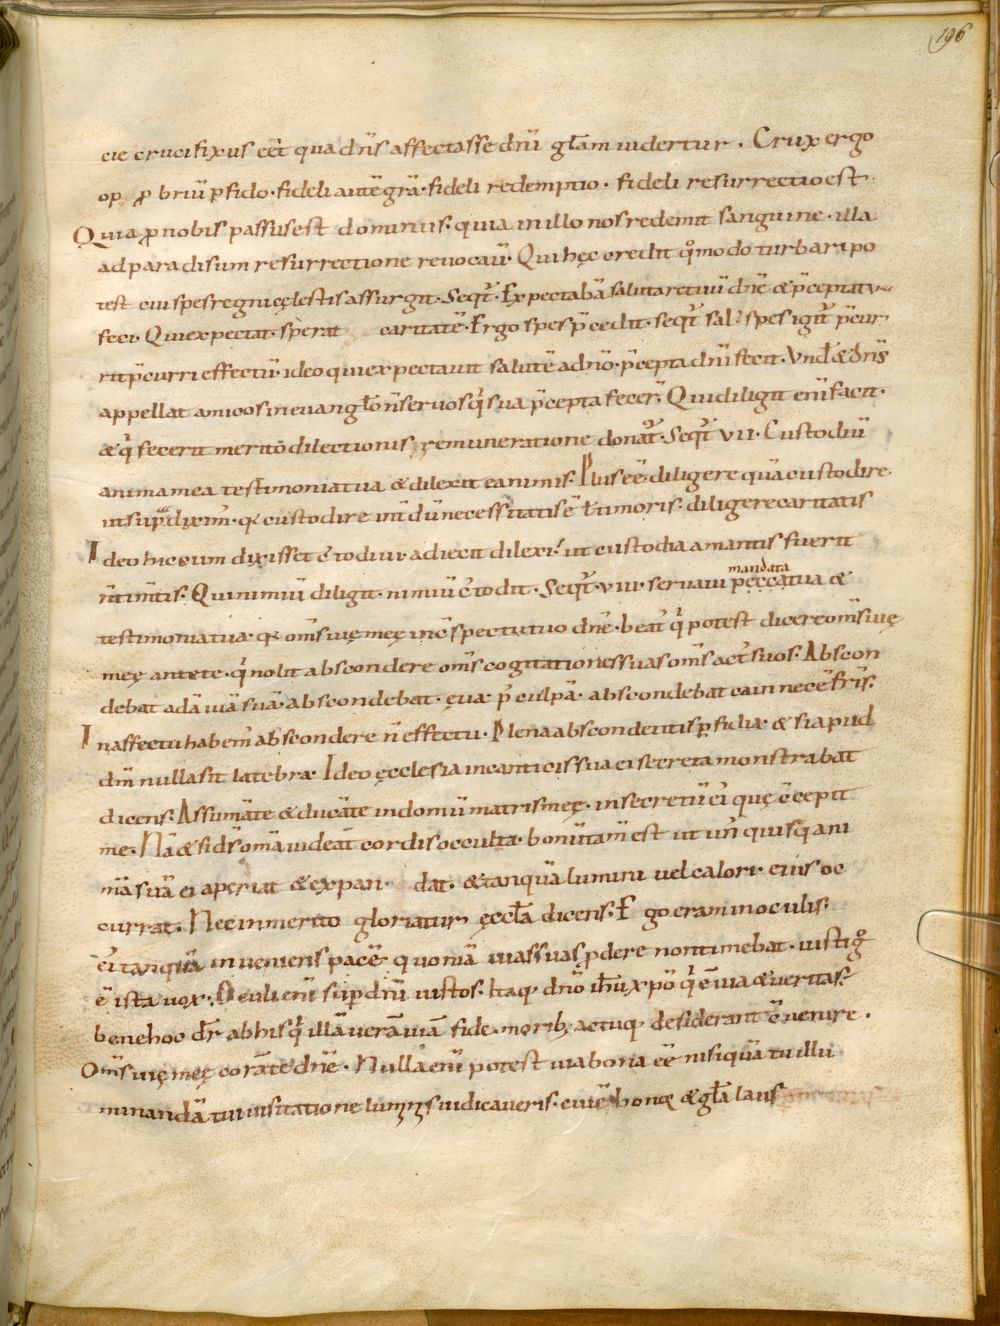 196
cie crucifixus eēt qua dn̄s affectasse dn̄i gl̄am uidertur. Crux ergo
op ꝓ briū ꝑfido · fideli autē gr̄a · fideli redemptio · fideli resurrectio est ·
Quia ꝓ nobis passus est dominus · quia in illo nos redemit sanguine · illa
ad paradisum resurrectione reuocauit · Qui hęc credit q̊modo turbari po
test cui spes regni cęlestis assurgit · Seqt̄ · Expectabā salutare tuū dn̄e & p̄cepta tua
feci · Qui expectat · sperat caritatē · Ergo spes p̄cedit · seqt̄ sal · spes igit̄ p̄cur
rit p̄curri effectū · ideo qui expectauit salutē a dn̄o · p̄cepta dn̄i fecit · Vnd̄ & dn̄s
appellat amicos in euangl̄o n̄ seruos q̇ sua p̄cepta fecer̄ · Qui diligit enī facit ·
& q̇ fecerit merito dilectionis remuneratione donat̄ · Seqt̄ VII · Custodiū
anima mea testimonia tua & dilexit ea nimis · Plus eē diligere quā custodire ·
ut sup̄ dixim̄ · q̨ custodire int̄dū necessitatis ē t̄ timoris · diligere caritatis
Ideo hic cum dixisset c̄todiui · adiecit dilexi · ut custodia amantis fuerit
n̄ tim̄tis · Qui nimiū diligit · nimiū c̄todit · Seqt̄ · VIII · seruaui peccata tua &
mandata
testimonia tua · q̨ om̄s uię meę in c̄spectu tuo dn̄e · beat̄ q̇ potest dicere om̄s uię
meę ante te · q̇ nolit abscondere om̄s cogitationes suas om̄s act̄ suos · Abscon
debat adā uiā suā · abscondebat · eua p̄ culpā · abscondebat cain necē fr̄is ·
In affectu habem̄ abscondere n̄ effectu · Plena abscondentis ꝑfidia · & si apud
dm̄ nulla sit latebra · Ideo ęcclesia in canticis sua ei secreta monstrabat
dicens · Assumā te & ducā te in domū matris meę · in secretū ei̇ quę c̄cepit
me · Nā & si ds̄ om̄a uideat cordis occulta · bonū tam̄ est ut un̄ quisq̨ ani
mā suā ei aperiat & expan dat · & tanquā lumini uel calori · eius oc
currat · Nec inmerito gloriatur ęccl̄a dicens · E go eram in oculis ·
ei̇ tanquā inueniens pacē · quoniā uias suas ꝓdere non timebat · iusti g̊
ē ista uox · Oculi enī sup̄ dn̄i iustos · Itaq̨ dn̄o ih̄u xp̄o q̇ ē uia & ueritas ·
bene hoc dr̄ ab his q̇ illā uerā uiā fide · morib; actuq̨ desiderant c̄uenire ·
Om̄s uię meę corā te dn̄e · Nulla enī potest uia bona eē nisi quā tu illu
minandā tui uisitatione luminis iudicaueris · cui ē honor & gl̄a laus